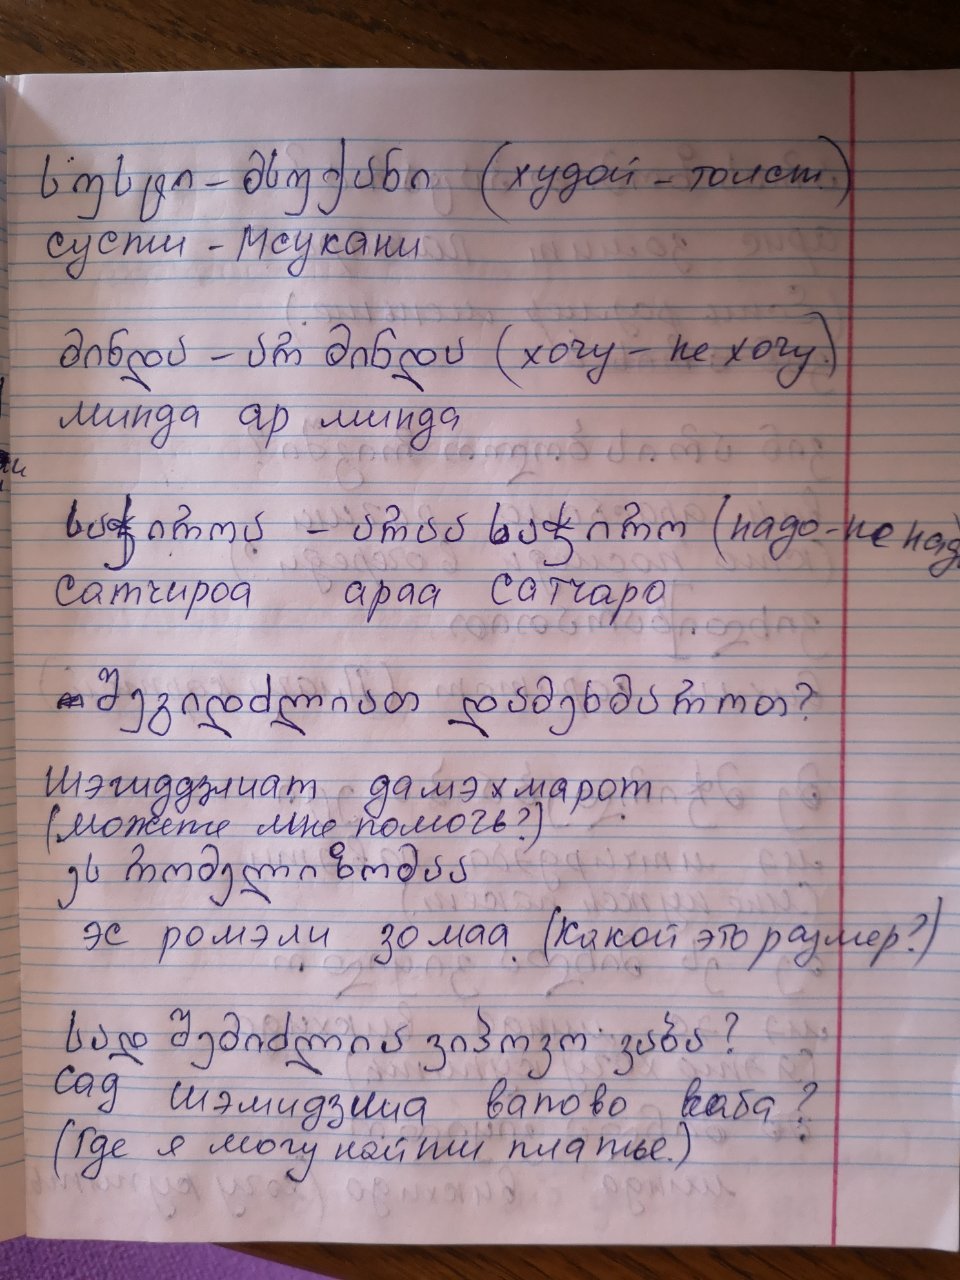 სუსტი - მსუქანი (худой - толст.)
сусти - мсукани
მინდა - არ მინდა (хочу - не хочу)
минда ар минда
საჭიროა - არაა საჭირო (надо - не над
сатчироа араа сатчаро
შეგიდძლიათ დამეხმაროთ?
шэгиддзлиат дамэхмарот
(можете мне помочь?)
ეს რომელი ზომაა
эс ромэли зомаа (какой это размер?)
სად შემიძლია ვიპოვო კაბა?
сад шэмидзлиа вапово каба?
(Где я могу найти платье.)